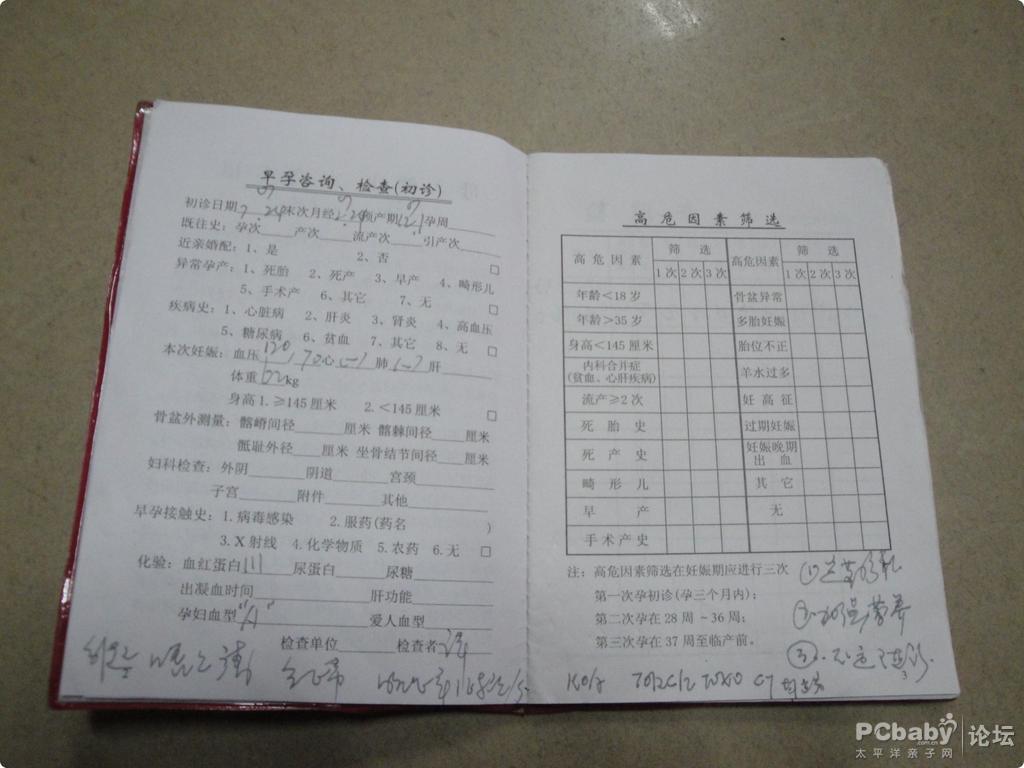 早孕咨询、检查(初诊)
初诊日期 末次月经 预产期 孕周
既往史：孕次 产次 流产次 引产次
近亲婚配：1、是 2、否 □
异常孕产：1、死胎 2、死产 3、早产 4、畸形儿
5、手术产 6、其它 7、无 □
疾病史：1、心脏病 2、肝炎 3、肾炎 4、高血压
5、糖尿病 6、贫血 7、其它 8、无 □
本次妊娠：血压120/70心(-)肺(-)肝
体重62kg
身高1.≥145厘米 2.<145厘米 □
骨盆外测量：髂嵴间径 厘米 髂棘间径 厘米
骶耻外径 厘米 坐骨结节间径 厘米
妇科检查：外阴 阴道 宫颈
子宫 附件 其他
早孕接触史：1.病毒感染 2.服药(药名 )
3.X射线 4.化学物质 5.农药 6.无 □
化验：血红蛋白111 尿蛋白 尿糖
出凝血时间 肝功能
孕妇血型"A" 爱人血型
检查单位 检查者
高危因素筛选
高危因素 筛选 高危因素 筛选
1次 2次 3次 1次 2次 3次
年龄<18岁 骨盆异常
年龄>35岁 多胎妊娠
身高<145厘米 胎位不正
内科合并症 羊水过多
(贫血、心肝疾病)
流产≥2次 妊高征
死胎史 过期妊娠
死产史 妊娠晚期
出血
畸形儿 其它
早产 无
手术产史
注：高危因素筛选在妊娠期应进行三次
第一次孕初诊(孕三个月内)：
第二次孕在28周~36周；
第三次孕在37周至临产前。
②加强营养
③
3
PCbaby
.com.cn
太平洋亲子网
论坛